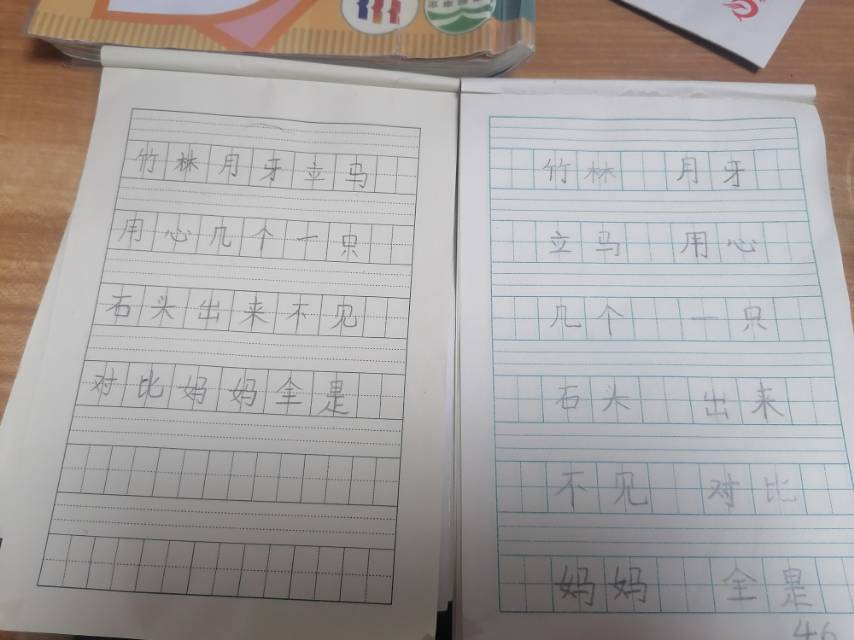 竹林月牙立马
用心几个一只
石头出来不见
对比妈妈全是
竹林 月牙
立马 用心
几个 一只
石头 出来
不见 对比
妈妈 全是
46